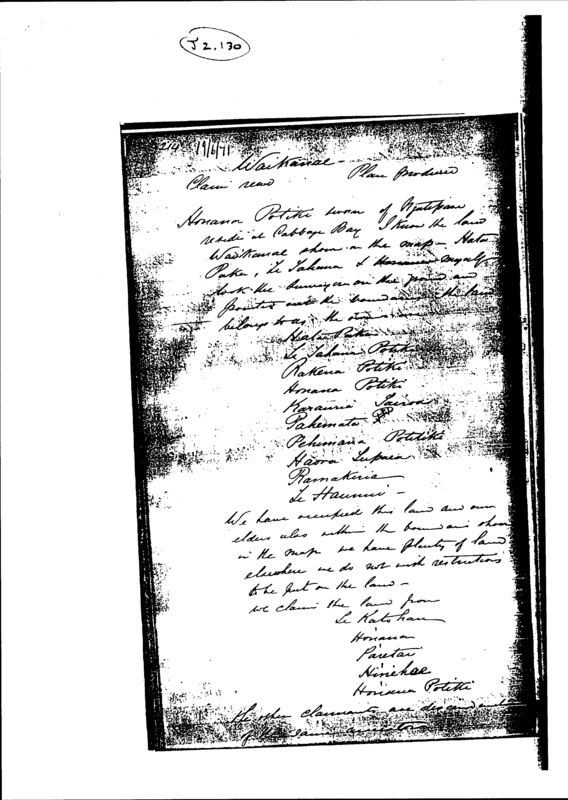 J 2.130
214 19/6/71
Waikanae -
Claim read Plan produced
Honana Potiki sworn of
reside at Cabbage Bay I know the land
Waikanae shown on the map - Hata
Paka, Te Tahuna & Honana myself
took the Surveyor on the ground and
pointed out the boundaries the land
belongs to us the owners
Hata Paka
Te Tahuna Potiki
Rakena Potiki
Honana Potiki
Karauria
Pahemata
Pehimana Potiki
Haora Tupaea
Ramakiria
Te Haunui -
We have occupied this land and our
elders also within the boundaries shown
in the map we have plenty of land
elsewhere we do not wish restrictions
to be put on the land -
we claim the land from
Te
Honana
Paretai
Hinehae
Honana Potiki
the other claimants are descendants
of the same ancestors